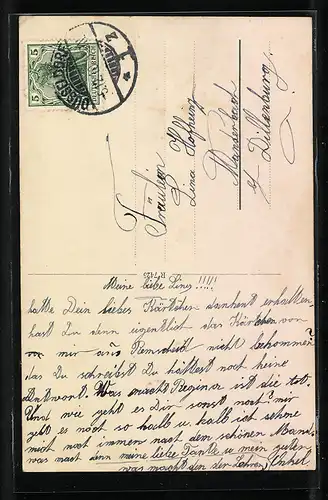 5 5
DÜSSELDORF
Fräulein
Lina Hofheinz
Manderbach
b/ Dillenburg
R 7425
Meine liebe Lina!!!!!
hatte Dein liebes Kärtchen dankend erhalten
hast Du denn eigentlich das Kärtchen von
mir aus Remscheid nicht bekommen?
das Du schreibst Du hättest noch keine
Antwort. Was macht Regina ist die tot.
Und wie geht es Dir sonst noch? mir
geht es noch so halb u. halb ich sehne
mich noch immer nach dem schönen Mand.
was macht denn meine liebe Tante u mein guter
was macht den der Onkel